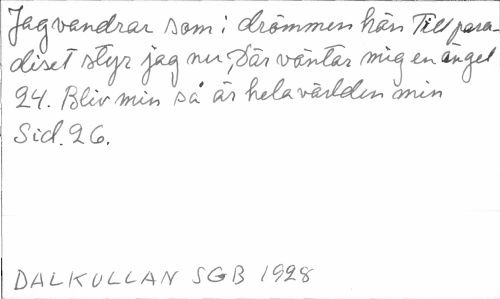 Jag vandrar som i drömmen hän Till para-
diset styr jag nu, Där väntar mig en ängel
24. Bliv min så är hela världen min
Sid. 26.
DALKULLAN SGB 1928